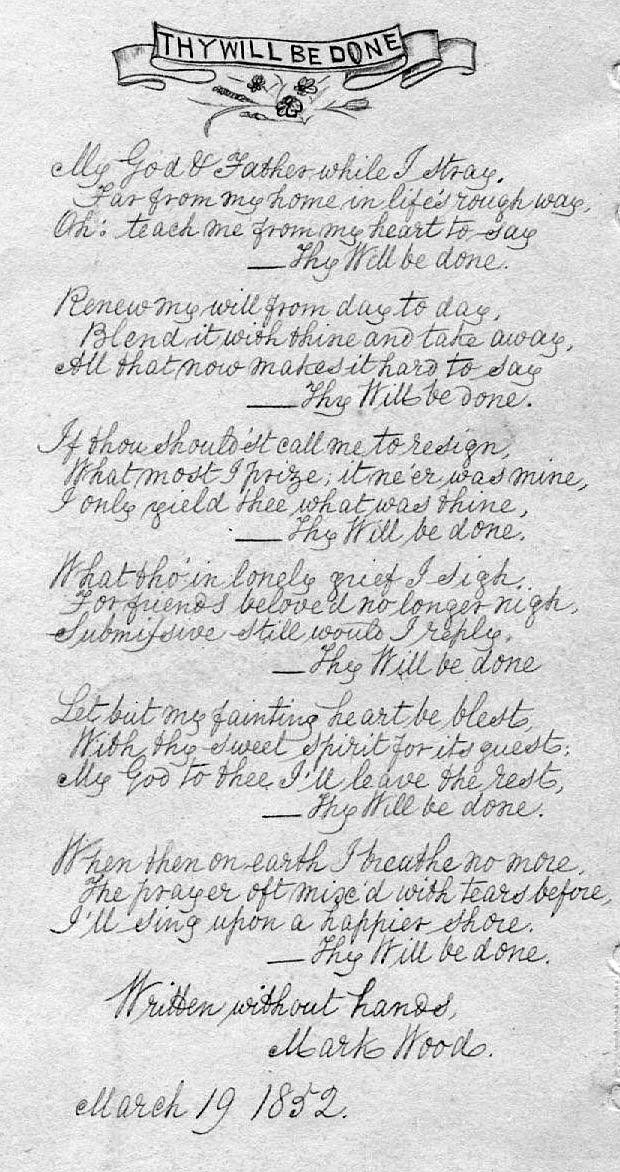 THY WILL BE DONE
My God & Father while I stray,
Far from my home in life's rough way,
Oh: teach me from my heart to say
— Thy Will be done.
Renew my will from day to day,
Blend it with thine and take away,
All that now makes it hard to say
— Thy Will be done.
If thou should'st call me to resign,
What most I prize; it ne'er was mine,
I only yield thee what was thine,
— Thy Will be done.
What tho' in lonely grief I sigh,
For friends belove'd no longer nigh,
Submissive still would I reply,
— Thy Will be done
Let but my fainting heart be blest,
With thy sweet spirit for its guest;
My God to thee I'll leave the rest,
— Thy Will be done.
When then on earth I breathe no more,
The prayer oft mixe'd with tears before,
I'll sing upon a happier shore.
— Thy Will be done.
Written without hands,
Mark Wood.
March 19 1852.